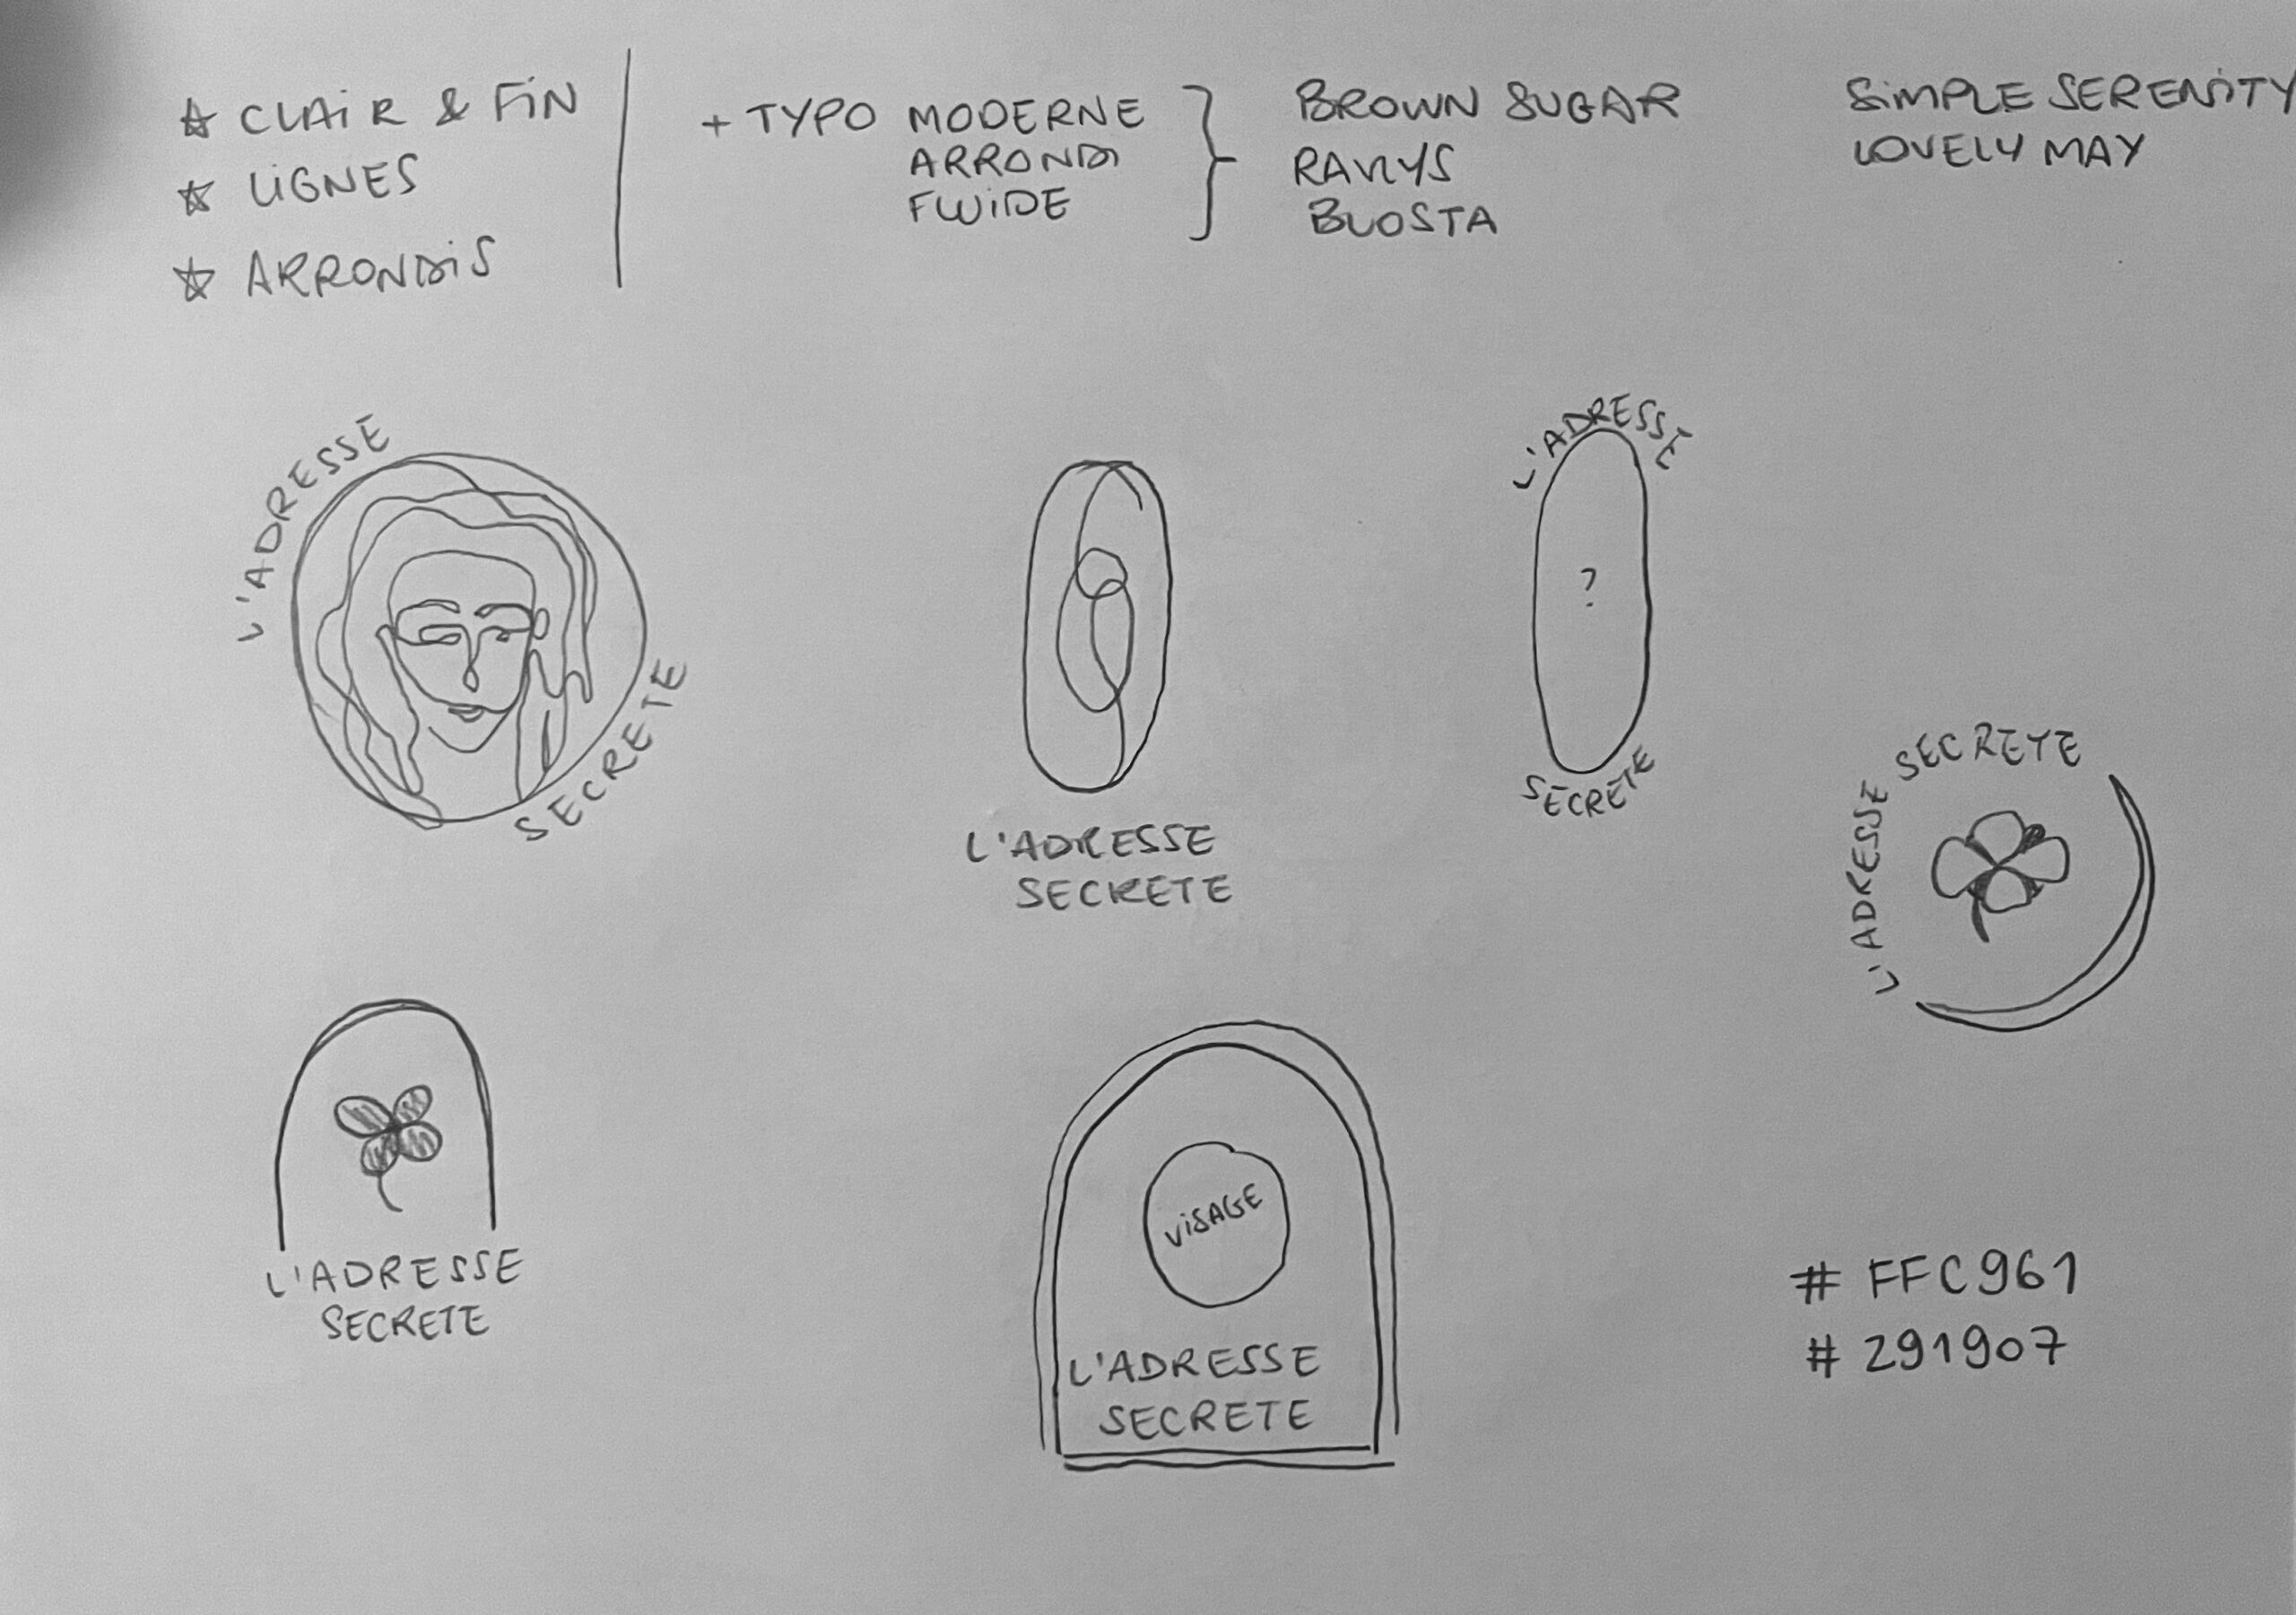 ☆ CLAIR & FIN
☆ LIGNES
☆ ARRONDIS
+ TYPO MODERNE
ARRONDI
FLUIDE
BROWN SUGAR
RAVLYS
BLOSTA
SIMPLE SERENITY
LOVELY MAY
L'ADRESSE
SECRETE
L'ADRESSE
SECRETE
L'ADRESSE
?
SECRETE
L'ADRESSE SECRETE
L'ADRESSE
SECRETE
VISAGE
L'ADRESSE
SECRETE
# FFC961
# 291907